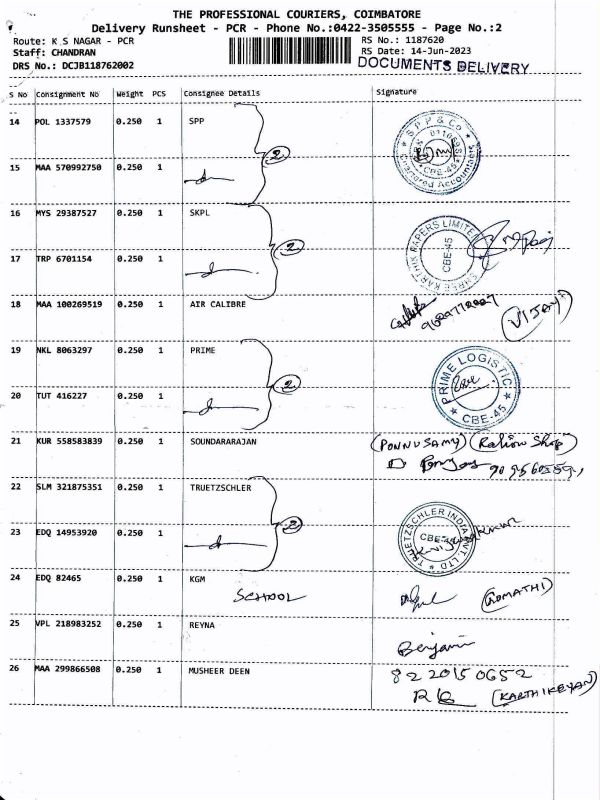 THE PROFESSIONAL COURIERS, COIMBATORE
Delivery Runsheet - PCR - Phone No.:0422-3505555 - Page No.:2
Route: K S NAGAR - PCR
RS No.: 1187620
Staff: CHANDRAN
RS Date: 14-Jun-2023
DRS No.: DCJB118762002
DOCUMENTS DELIVERY
S No Consignment No Weight PCS Consignee Details Signature
14 POL 1337579 0.250 1 SPP
SPP & Co
Chartered Accountants
CBE-45
2
15 MAA 570992750 0.250 1
16 MYS 29387527 0.250 1 SKPL
SHREE KARTHIK PAPERS LIMITED
CBE-45
2
17 TRP 6701154 0.250 1
18 MAA 100269519 0.250 1 AIR CALIBRE
(VIJAY)
19 NKL 8063297 0.250 1 PRIME
PRIME LOGISTIC
CBE-45
2
20 TUT 416227 0.250 1
21 KUR 558583839 0.250 1 SOUNDARARAJAN
(PONNUSAMY) (Ration Shop)
22 SLM 321875351 0.250 1 TRUETZSCHLER
TRUETZSCHLER INDIA PVT. LTD
CBE-45
2
23 EDQ 14953920 0.250 1
24 EDQ 82465 0.250 1 KGM
SCHOOL
(GOMATHI)
25 VPL 218983252 0.250 1 REYNA
Benjamin
26 MAA 299866508 0.250 1 MUSHEER DEEN
82 2015 0652
(KARTHIKEYAN)